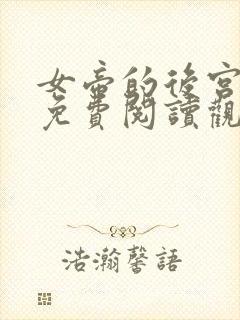 女帝的後宮
免費閱讀觀
浩瀚馨語